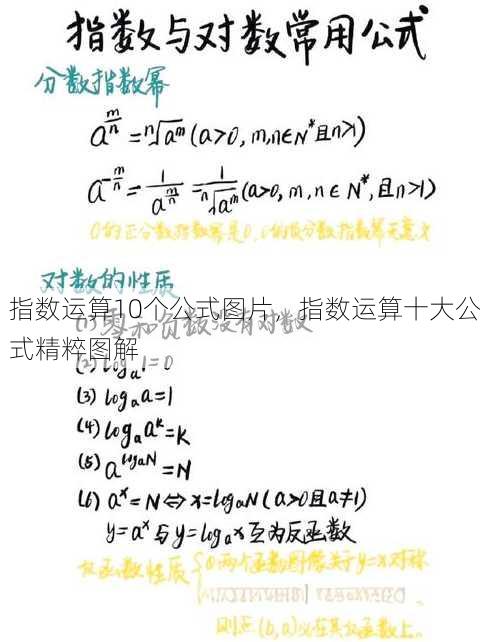 指数与对数常用公式
分数指数幂
a^{m/n} = ⁿ√a^m (a>0, m,n∈N*且n>1)
a^{-m/n} = 1/a^{m/n} = 1/ⁿ√a^m (a>0, m, n ∈ N*, 且n>1)
0的正分数指数幂是0, 0的负分数指数幂无意义
对数的性质
指数运算10个公式图片，指数运算十大公
(1) 零和负数没有对数
式精粹图解
(2) log_a 1 = 0
(3) log_a a = 1
(4) log_a a^k = k
(5) a^{log_a N} = N
(6) a^x = N ⇔ x = log_a N (a>0且a≠1)
y = a^x 与 y = log_a x 互为反函数
反函数性质 { ① 两个函数图像关于y=x对称
则点(b, a)必在其反函数上.